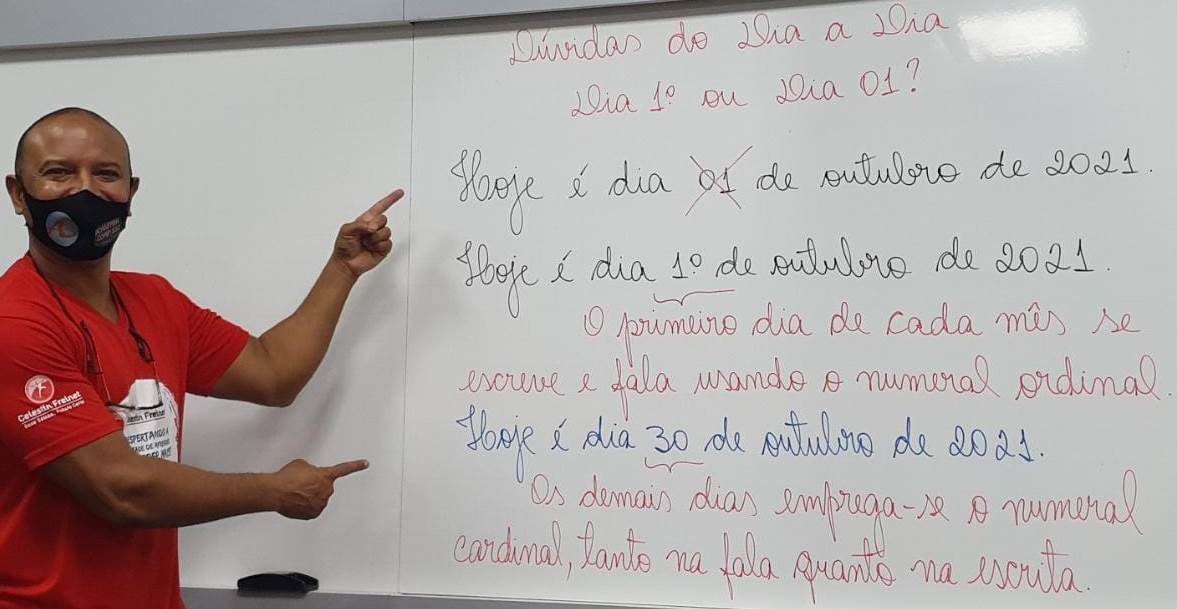 Dúvidas do Dia a Dia
Dia 1º ou Dia 01?
Hoje é dia 01 de outubro de 2021.
Hoje é dia 1º de outubro de 2021.
O primeiro dia de cada mês se
escreve e fala usando o numeral ordinal.
Hoje é dia 30 de outubro de 2021.
Os demais dias emprega-se o numeral
cardinal, tanto na fala quanto na escrita.
Celestin Freinet